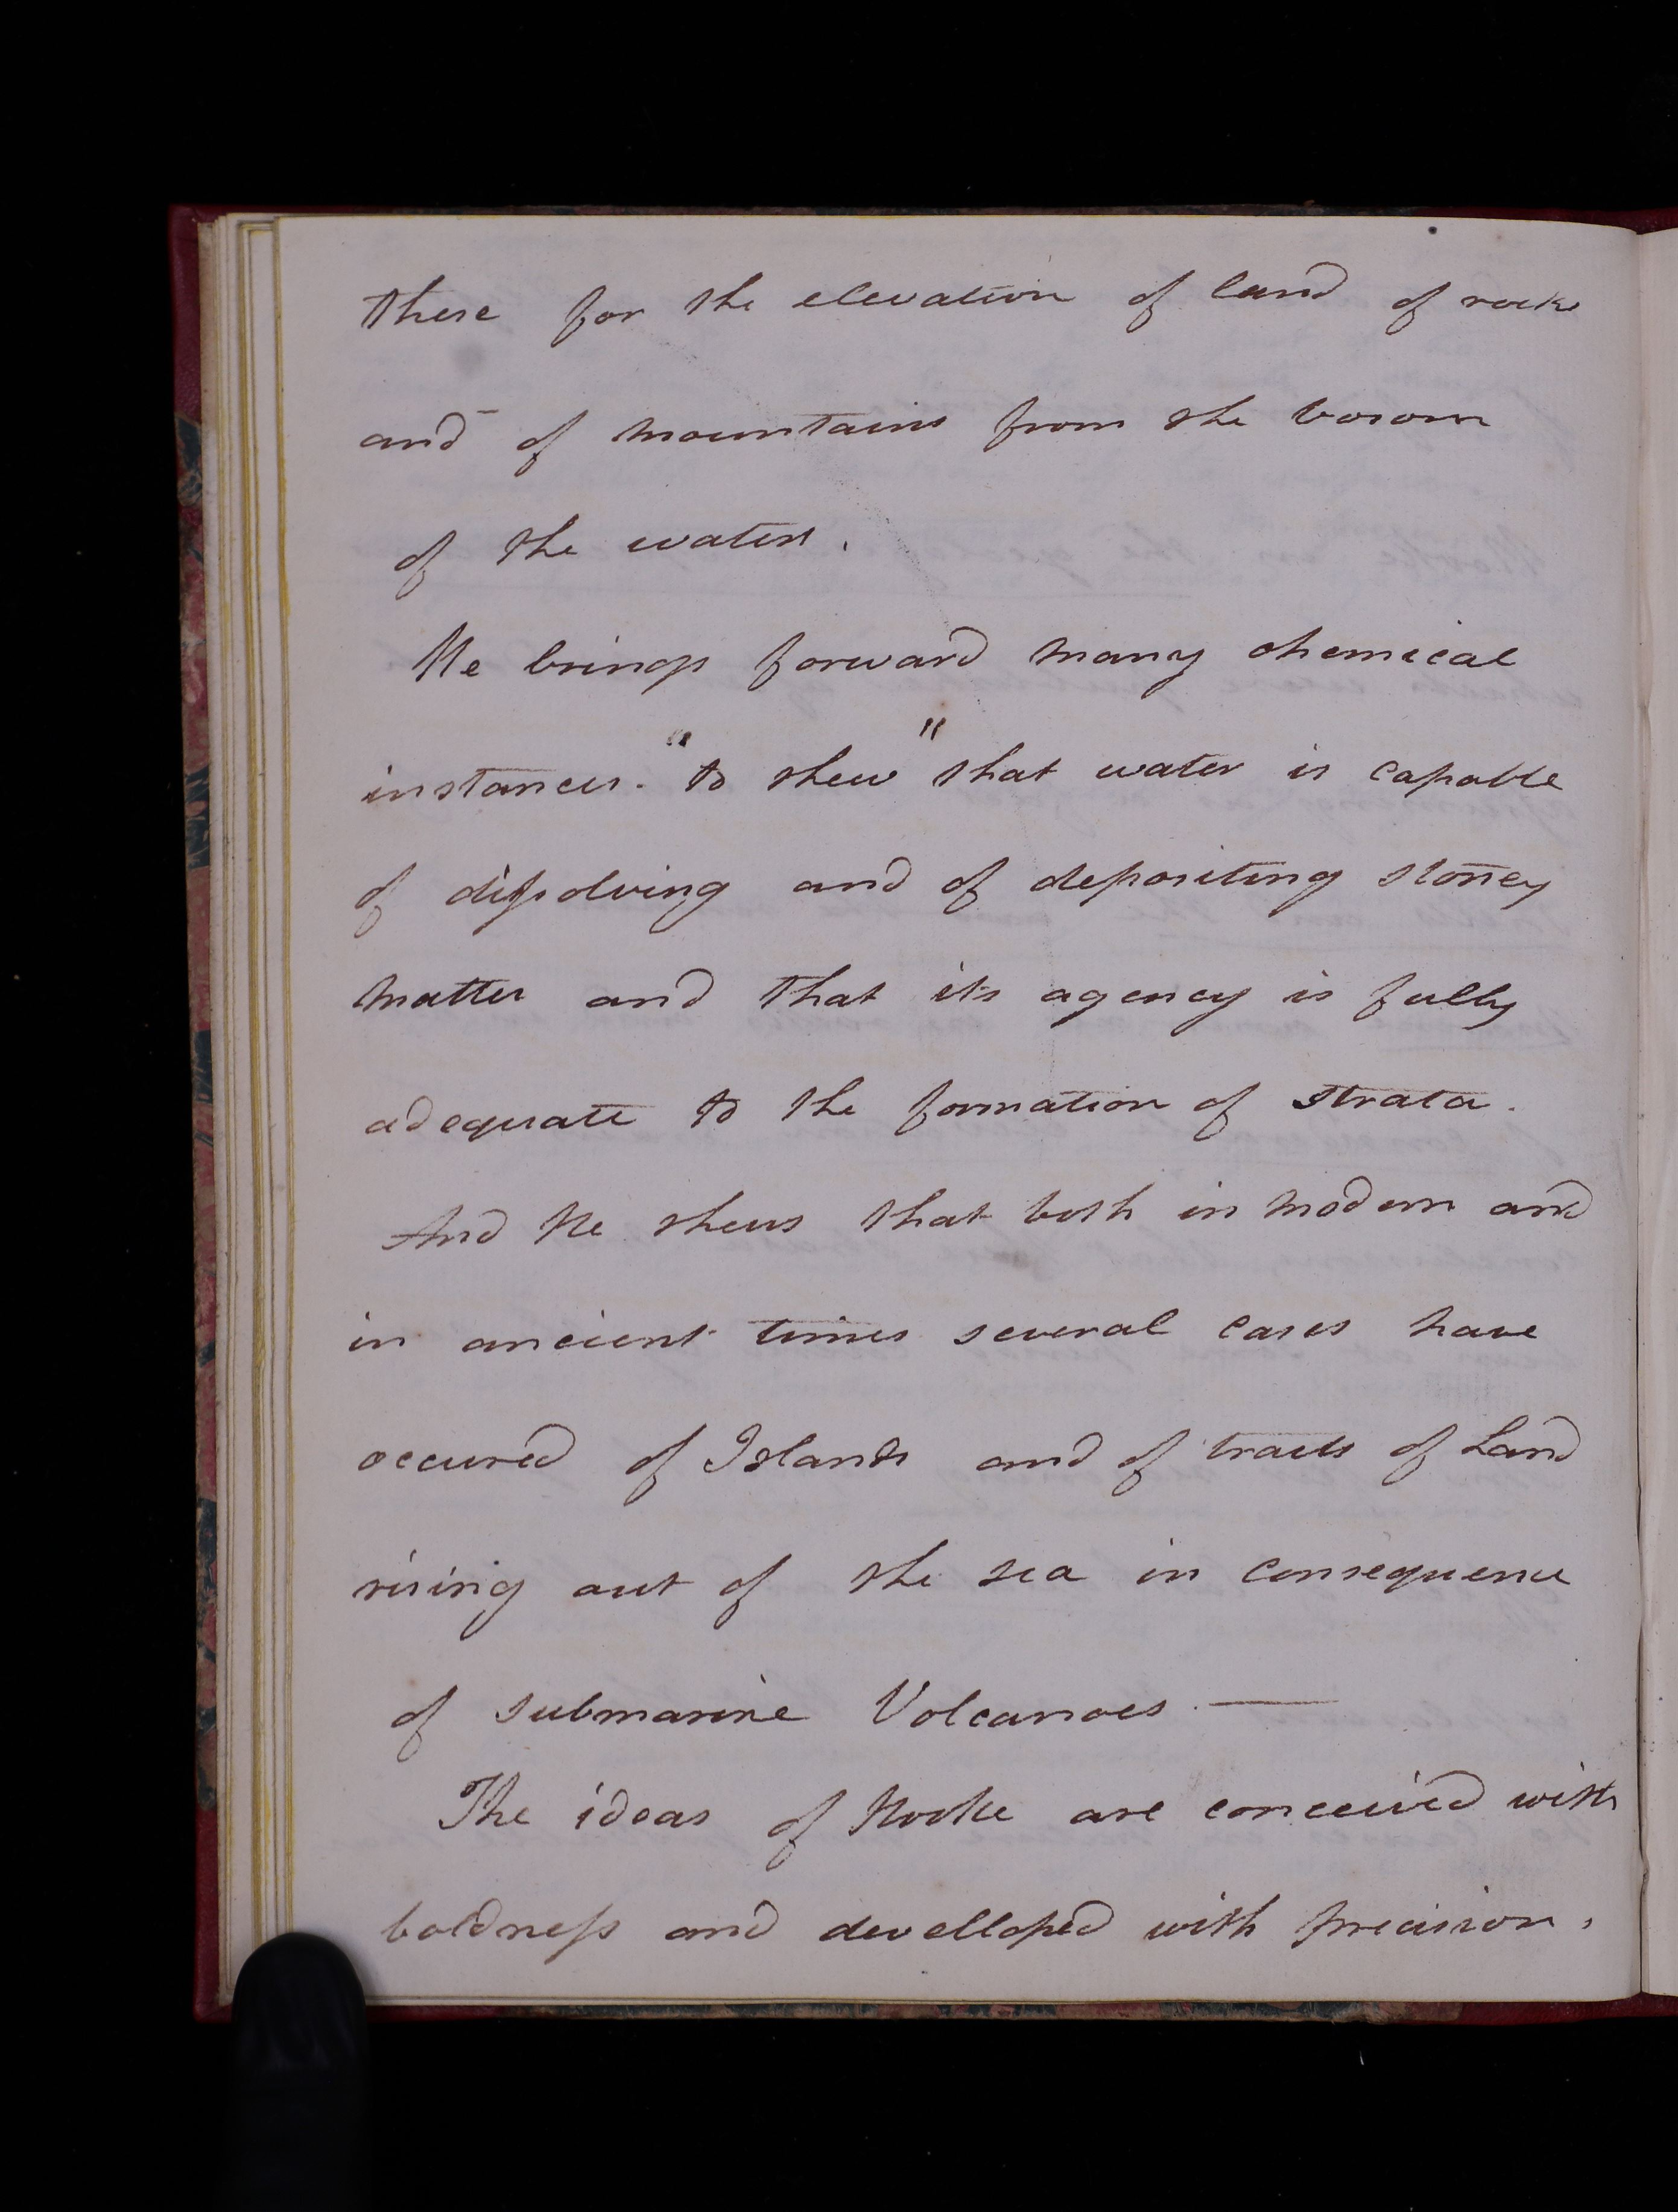 these for the elevation of land of rocks
and of mountains from the bosom
of the waters.
He brings forward many chemical
instances. "to shew" that water is capable
of dissolving and of depositing stoney
matter and that its agency is fully
adequate to the formation of strata.
And He shews that both in modern and
in ancient times several cases have
occured of Islands and of tracts of Land
rising out of the sea in consequence
of submarine Volcanoes —
The ideas of Hooke are conceived with
boldness and developped with precision,